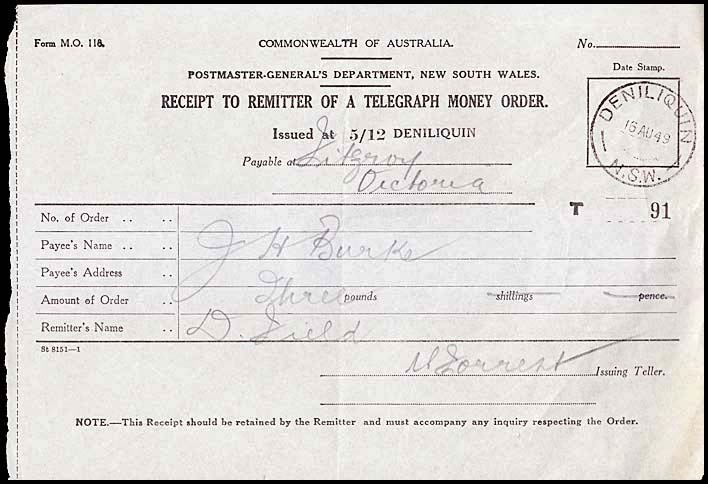 Form M.O. 118.
COMMONWEALTH OF AUSTRALIA.
No.
POSTMASTER-GENERAL'S DEPARTMENT, NEW SOUTH WALES.
Date Stamp.
RECEIPT TO REMITTER OF A TELEGRAPH MONEY ORDER.
DENILIQUIN
16 AU 49
N.S.W.
Issued at 5/12 DENILIQUIN
Payable at Fitzroy
Victoria
T 91
No. of Order .. ..
Payee's Name .. .. J H Burke
Payee's Address ..
Amount of Order .. Three pounds shillings pence.
Remitter's Name .. D. Field
St 8151—1
Issuing Teller.
NOTE.—This Receipt should be retained by the Remitter and must accompany any inquiry respecting the Order.